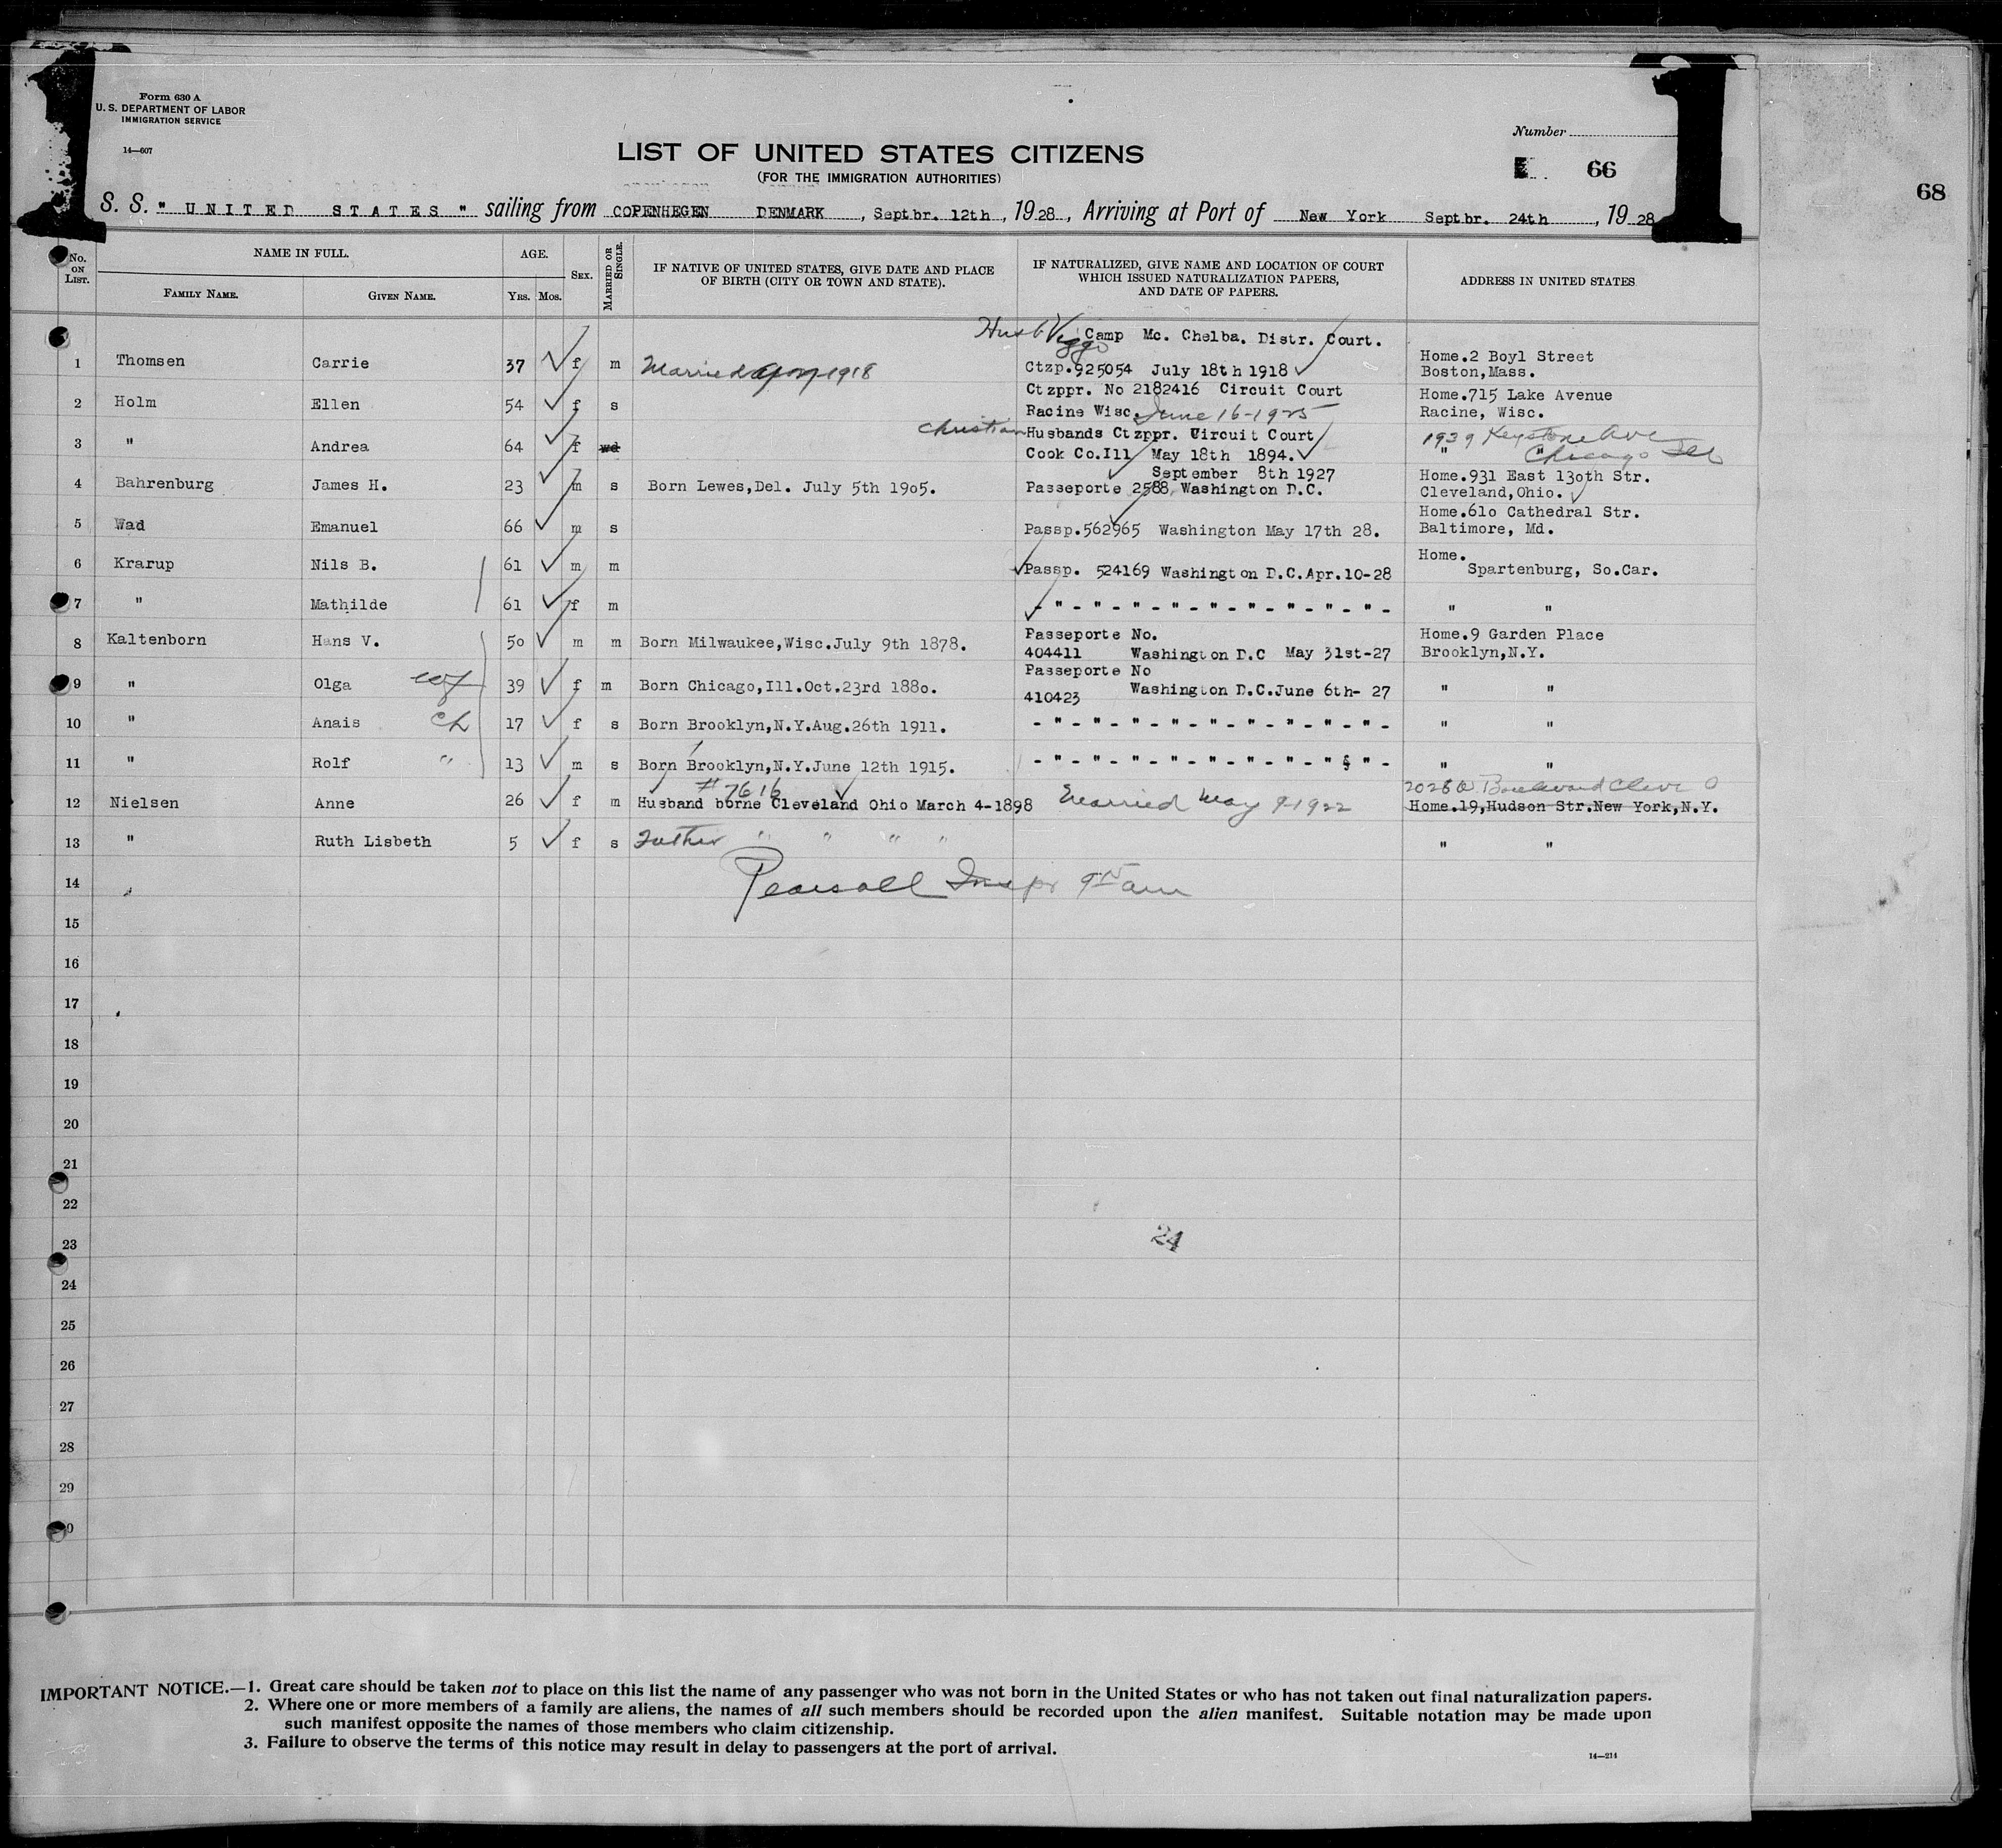 Form 630 A
U. S. DEPARTMENT OF LABOR
IMMIGRATION SERVICE
14—607
1
1
Number
66
68
LIST OF UNITED STATES CITIZENS
(FOR THE IMMIGRATION AUTHORITIES)
S. S. " UNITED STATES " sailing from COPENHEGEN DENMARK, Septbr. 12th, 1928, Arriving at Port of New York Septbr. 24th, 1928
No. ON LIST.
NAME IN FULL.
FAMILY NAME.
GIVEN NAME.
AGE.
YRS. MOS.
SEX.
MARRIED OR SINGLE.
IF NATIVE OF UNITED STATES, GIVE DATE AND PLACE
OF BIRTH (CITY OR TOWN AND STATE).
IF NATURALIZED, GIVE NAME AND LOCATION OF COURT
WHICH ISSUED NATURALIZATION PAPERS,
AND DATE OF PAPERS.
ADDRESS IN UNITED STATES
Husb Viggo Camp Mc. Chelba. Distr. Court.
1 Thomsen Carrie 37 f m Married 1918 Ctzp.925054 July 18th 1918 Home.2 Boyl Street
Boston,Mass.
2 Holm Ellen 54 f s Ctzppr. No 2182416 Circuit Court Home.715 Lake Avenue
Racine Wisc. June 16-1925 Racine, Wisc.
3 " Andrea 64 f wd Christian Husbands Ctzppr. Circuit Court 1939 Keystone Ave
Cook Co.Ill May 18th 1894. " " Chicago Ill
4 Bahrenburg James H. 23 m s Born Lewes,Del. July 5th 19o5. September 8th 1927 Home.931 East 13oth Str.
Passeporte 2588, Washington D.C. Cleveland,Ohio.
5 Wad Emanuel 66 m s Passp.562965 Washington May 17th 28. Home.61o Cathedral Str.
Baltimore, Md.
6 Krarup Nils B. 61 m m Passp. 524169 Washington D.C.Apr.10-28 Home.
Spartenburg, So.Car.
7 " Mathilde 61 f m - " - " - " - " - " - " - " - " - " - " "
8 Kaltenborn Hans V. 5o m m Born Milwaukee,Wisc.July 9th 1878. Passeporte No. Home.9 Garden Place
404411 Washington D.C May 31st-27 Brooklyn,N.Y.
9 " Olga wf 39 f m Born Chicago,Ill.Oct.23rd 188o. Passeporte No
410423 Washington D.C.June 6th- 27 " "
10 " Anais ch 17 f s Born Brooklyn,N.Y.Aug.26th 1911. - " - " - " - " - " - " - " - " - " - " "
11 " Rolf " 13 m s Born Brooklyn,N.Y.June 12th 1915. - " - " - " - " - " - " - " - " - " "
# 7616
12 Nielsen Anne 26 f m Husband borne Cleveland Ohio March 4-1898 Married May 9-1922 2028 W. Boulevard Cleve O
Home.19,Hudson Str.New York,N.Y.
13 " Ruth Lisbeth 5 f s Father " " " " " "
14 Pearsall Inspr 9 15 am
15
16
17
18
19
20
21
22
23
24
24
25
26
27
28
29
IMPORTANT NOTICE.—1. Great care should be taken not to place on this list the name of any passenger who was not born in the United States or who has not taken out final naturalization papers.
2. Where one or more members of a family are aliens, the names of all such members should be recorded upon the alien manifest. Suitable notation may be made upon
such manifest opposite the names of those members who claim citizenship.
3. Failure to observe the terms of this notice may result in delay to passengers at the port of arrival.
14—214